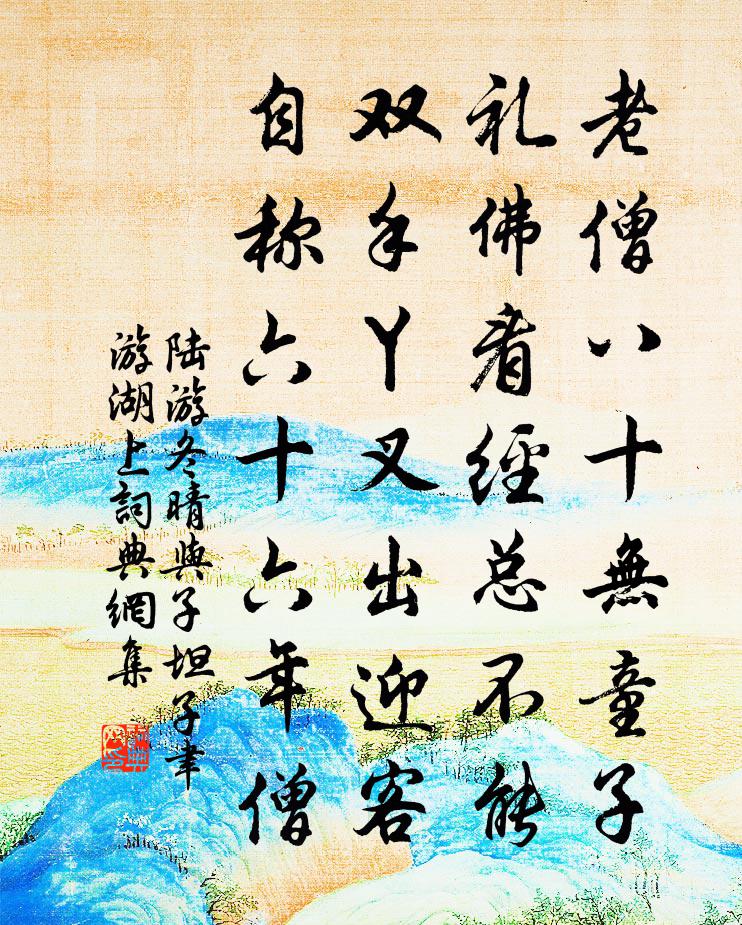 老僧八十無童子
礼佛看經总不能
双手丫叉出迎客
自称六十六年僧
陆游冬晴與子坦子聿
游湖上詞典網集